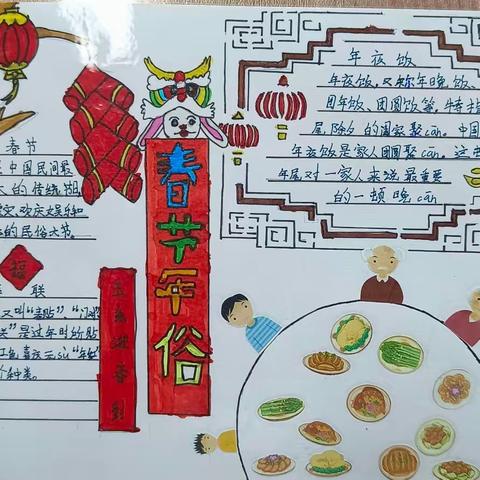 春节
中国民间最
大的传统
欢庆娱乐和
的民俗大节。
福
联
又叫“春贴”,“门对
是过年时的贴
红色喜庆元sù“年红
种类。
春节年俗
迎春到
年夜饭
年夜饭,又称年晚饭、
团年饭、团圆饭等,特指
尾除夕的阖家聚cān。中国
年夜饭是家人团圆聚cān,这
年尾对一家人来说最重要
的一顿晚cān